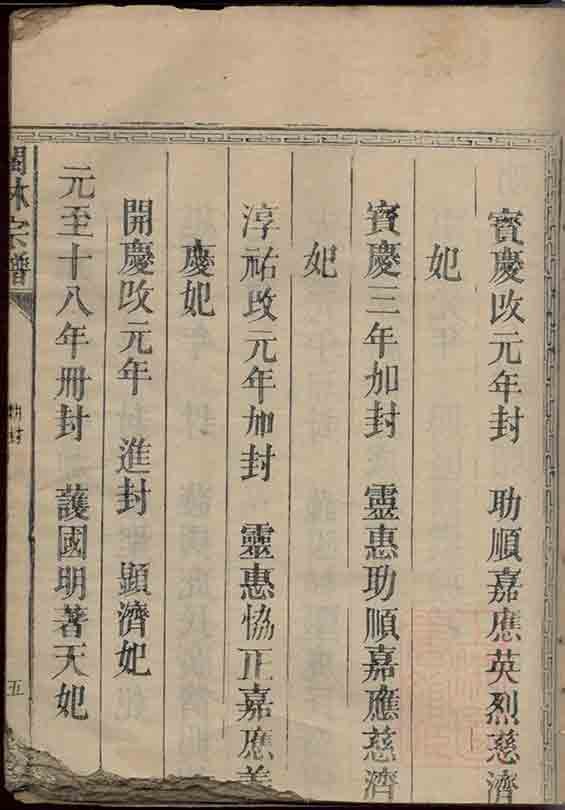 寳慶改元年封　助順嘉應英烈慈濟
妃
寳慶三年加封　靈惠助順嘉應慈濟
妃
淳祐改元年加封　靈惠協正嘉應善
慶妃
開慶改元年　進封　顯濟妃
元至十八年冊封　護國明著天妃
林宗譜
勅封
五